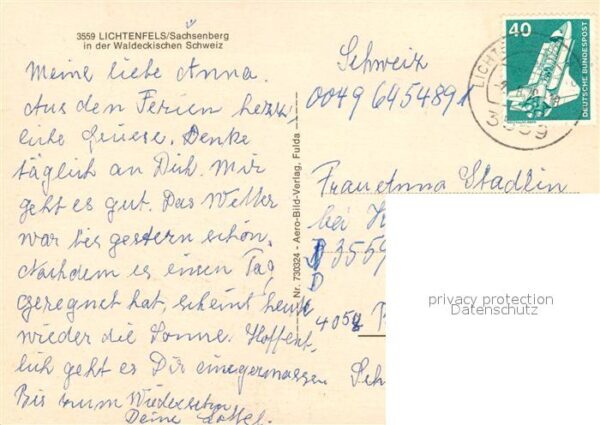 3559 LICHTENFELS/Sachsenberg
in der Waldeckischen Schweiz
Meine liebe Anna.
Aus den Ferien herz-
liche Grüsse. Denke
täglich an Dich. Mir
geht es gut. Das Wetter
war bis gestern schön.
Nachdem es einen Tag
geregnet hat, scheint heute
wieder die Sonne. Hoffent-
lich geht es Dir einigermassen.
Bis zum Wiedersehn
Deine
Nr. 730324 - Aero-Bild-Verlag, Fulda
Schweiz
0049 6454891
Frau Anna Stadlin
bei
D 3559
D
4058
Sch
40
DEUTSCHE BUNDESPOST
LICHTE
3559
privacy protection
Datenschutz